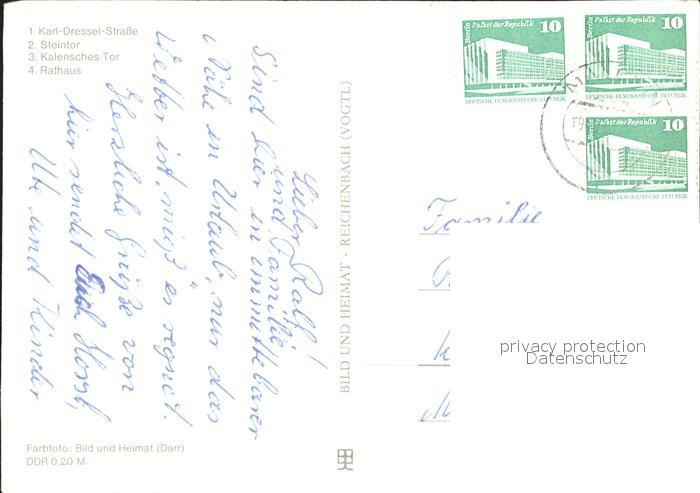 1. Karl-Dressel-Straße
2. Steintor
3. Kalensches Tor
4. Rathaus
Lieber Ralf!
und Familie
Sind hier in unmittelbarer
Nähe in Urlaub, nur das
Wetter ist mieß es regnet.
Herzliche Grüße von
hier sendet Euch Horst,
Ute und Kinder
Farbfoto: Bild und Heimat (Darr)
DDR 0,20 M
BILD UND HEIMAT · REICHENBACH (VOGTL)
Berlin Palast der Republik 10
DEUTSCHE DEMOKRATISCHE REPUBLIK
Berlin Palast der Republik 10
DEUTSCHE DEMOKRATISCHE REPUBLIK
Berlin Palast der Republik 10
DEUTSCHE DEMOKRATISCHE REPUBLIK
Familie
privacy protection
Datenschutz